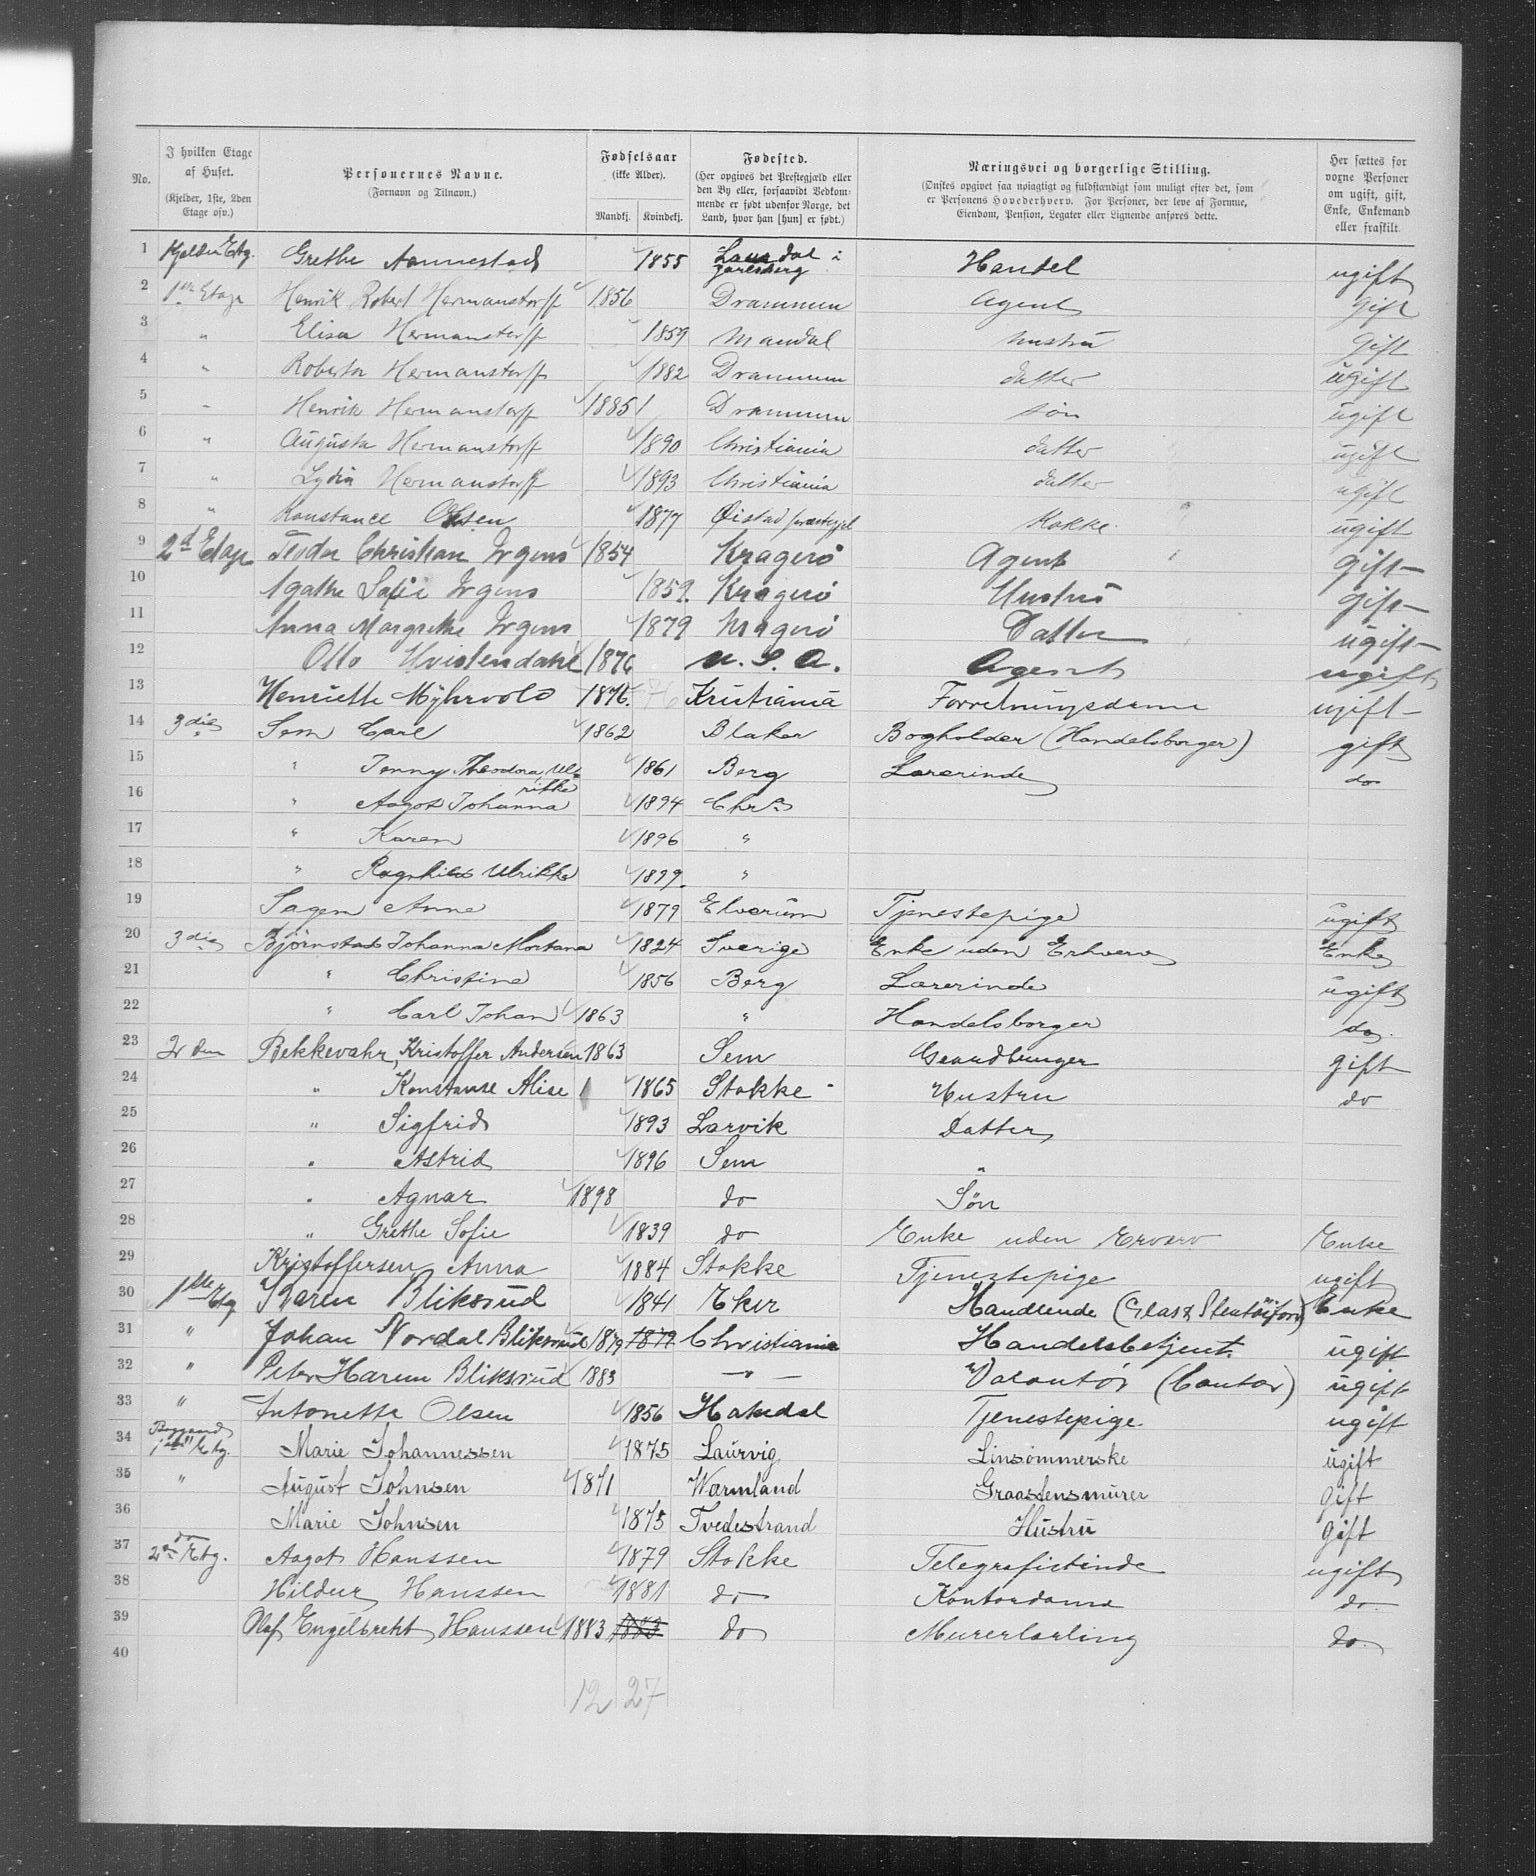 No.
I hvilken Etage af Huset.
(Kjelder, 1ste, 2den Etage osv.)
Personernes Navne.
(Fornavn og Tilnavn.)
Fødselsaar
(ikke Alder).
Mandkj. Kvindekj.
Fødested.
(Her opgives det Prestegjæld eller den By eller, forsaavidt Vedkommende er født udenfor Norge, det Land, hvor han [hun] er født.)
Næringsvei og borgerlige Stilling.
(Ønskes opgivet saa nøiagtigt og fuldstændigt som muligt efter det, som er Personens Hovederhverv. For Personer, der leve af Formue, Eiendom, Pension, Legater eller Lignende anføres dette.
Her sættes for voxne Personer om ugift, gift, Enke, Enkemand eller fraskilt.
1 Kjelder Etg. Grethe Aannestad 1855 i Jarlsberg Handel ugift
2 1ste Etage Henrik Robert Hermanstorff 1856 Drammen Agent Gift
3 " Elisa Hermanstorff 1859 Mandal Hustru Gift
4 " Roberta Hermanstorff 1882 Drammen datter ugift
5 " Henrik Hermanstorff 1885 Drammen søn ugift
6 " Augusta Hermanstorff 1890 Christiania datter ugift
7 " Lydia Hermanstorff 1893 Christiania datter ugift
8 " Konstance Olsen 1877 Øistad præstegjel Kokke ugift
9 2d Etage Christian Irgens 1854 Kragerø Agent gift
10 Agathe Sofie Irgens 1859. Kragerø Hustru gift
11 Anna Margrethe Irgens 1879 Kragerø Datter ugift
12 Otto Hvistendahl 1876 U. S. A. Agent ugift
13 Henriette Myhrvold 1876. 76 Kristiania Forretningsdame ugift
14 3die Sem Carl 1862 Blaker Bogholder (Handelsborger) gift
15 " Jenny Theodora Ulrikke 1861 Berg Lærerinde do
16 " Aagot Johanna 1894 Chr.a
17 " Karen 1896 "
18 " Ragnhild Ulrikke 1899. "
19 Sagen Anne 1879 Elverum Tjenestepige ugift
20 3die Bjørnstad Johanna Mortana 1824 Sverige Enke uden Erhverv Enke
21 " Christine 1856 Berg Lærerinde ugift
22 " Carl Johan 1863 " Handelsborger do.
23 2den Bekkevahr, Kristoffer Andersen 1863 Sem Gaardbruger gift
24 " Konstanse Alise 1865 Stokke Hustru do
25 " Sigfrid 1893 Larvik Datter
26 " Astrid 1896 Sem "
27 " Agnar 1898 do Søn
28 " Grethe Sofie 1839 do Enke uden Erværv Enke
29 Kristoffersen Anna 1884 Stokke Tjenestepige ugift
30 1ste Etg Karen Bliksrud 1841 Eker Handlende (Glas & Stentøiforr) Enke
31 " Johan Nordal Bliksrud 1879 1879 Christiania Handelsbetjent. ugift
32 " Peter Harem Bliksrud 1883 — " — Volontør (Contor) ugift
33 " Antonette Olsen 1856 Hakedal Tjenestepige. ugift
34 1ste Etg. Marie Johannessen 1875 Laurvig Linsømmerske ugift
35 " August Johnsen 1871 Wærmland Graastensmurer gift
36 Marie Johnsen 1875 Tvedestrand Hustru gift
37 do 2den Etg. Aagot Hanssen 1879 Stokke Telegrafistinde ugift
38 Hildur Hanssen 1881 do Kontordame do
39 Olaf Engelbrekt Hanssen 1883 1883 do Murerlærling do.
40
12 27